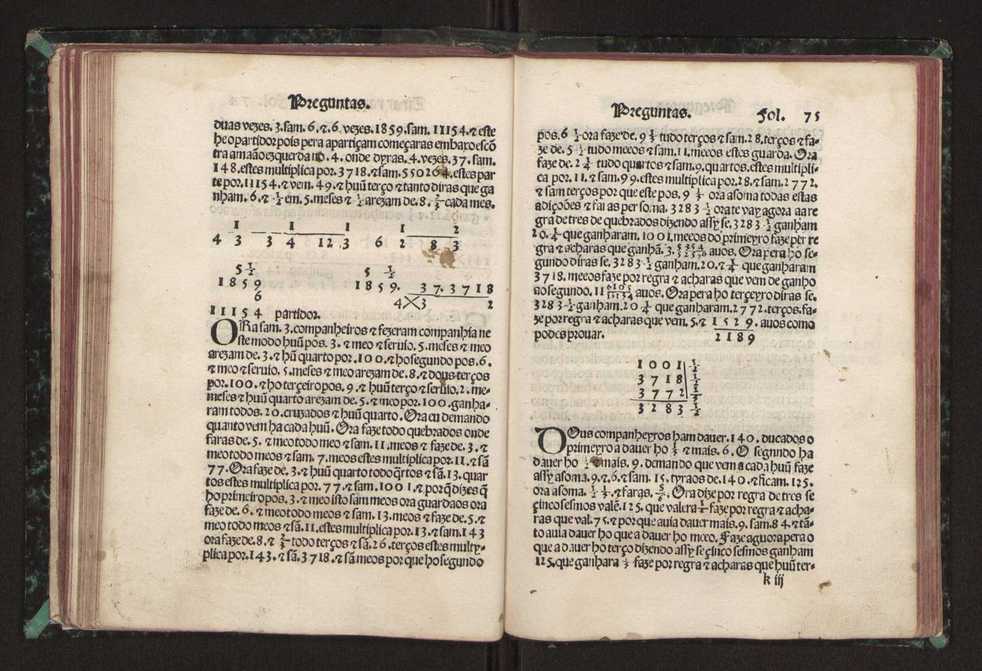 Preguntas.
duas vezes. 3. sam. 6. ⁊. 6. vezes. 1859. sam. 11154. ⁊ este
he o partidor pois pera a partiçam começaras em baxo escõ
tra a mão ezquerda no. 4. onde dyras. 4. vezes. 37. sam.
148. estes multiplica por. 3718. ⁊ sam. 550264. estes par
te por. 11154. ⁊ vem. 49. ⁊ huũ terço ⁊ tanto diras que ga
nham. 6. ⁊ ½ em. 5. meses ⁊ ½ a rezam de. 8. ⅔ cada mes.
1 1 1 1 2
4 3 3 4 12 3 6 2 8 3
5 ½ 5 ½
1859 1859. 37. 3718
6 4 3 2
11154 partidor.
ORa sam. 3. companheiros ⁊ fezeram companhia ne
ste modo huũ pos. 3. ⁊ meo ⁊ seruio. 5. meses ⁊ meo
a rezam de. 3. ⁊ huũ quarto por. 100. ⁊ ho segundo pos. 6.
⁊ meo ⁊ seruio. 5. meses ⁊ meo a rezam de. 8. ⁊ dous terços
por. 100. ⁊ ho terçeiro pos. 9. ⁊ huũ terço ⁊ seruio. 2. me-
meses ⁊ huũ quarto a rezam de. 5. ⁊ meo por. 100. ganha-
ram todos. 20. cruzados ⁊ huũ quarto. Ora eu demando
quanto vem ha cada huũ. Ora faze todo quebrados onde
faras de. 5. ⁊ meo todo meo ⁊ sam. 11. meos ⁊ faze de. 3. ⁊
meo todo meos ⁊ sam. 7. meos estes multiplica por. 11. ⁊ sã
77. Ora faze de. 3. ⁊ huũ quarto todo qrtos ⁊ sã. 13. quar
tos estes multiplica por. 77. ⁊ sam. 1001. ⁊ porq̃ dizes q̃
ho primeiro pos. 3. ⁊ meo isto sam meos ora guarda os ora
faze de. 6. ⁊ meo todo meos ⁊ sam. 13. meos ⁊ faze de. 5. ⁊
meo todo meos ⁊ sã. 11. estes multiplica por. 13. ⁊ sam. 143
ora faze de. 8. ⁊ ⅔ todo terços ⁊ sã. 26. terços estes multy-
plica por. 143. ⁊ sã. 3718. ⁊ sã meos por que ho segundo
Preguntas. Fol. 75
pos. 6 ½ ora faze de. 9 ⅓ tudo terços ⁊ sam. 28. terços ⁊ fa-
ze de. 5 ½ tudo meos ⁊ sam. 11. meos estes guarda. Ora
faze de. 2 ¼ tudo quartos ⁊ sam. 9. quartos. estes multipli-
ca por. 11. ⁊ sam. 99. estes multiplica por. 28. ⁊ sam. 2772.
⁊ sam terços por que este pos. 9 ⅓ ora asoma todas estas
adiçoões ⁊ faras per soma. 3283 ½ ora te vay agora aa re
gra de tres de quebrados dizendo assy se. 3283 ½ ganham
20. ¼ que ganharam. 1001. meos do primeyro faze per re
gra ⁊ acharas que ganhã. 3. auos. Ora pera ho se-
gundo diras se. 3283 ½ ganham. 20. ⁊ ¼ que ganharam
3718. meos faze por regra ⁊ acharas que vem de ganho
no segundo. 11 auos. Ora pera ho terçeyro diras se.
3283 ½ ganham. 20 ¼ que ganharam. 2772. terços. fa-
ze por regra ⁊ acharas que vem. 5. ⁊ 1529. auos como
podes prouar. 2189
1001 ½
3718 ½
3772
3283 ½
DOus companheyros ham dauer. 140. ducados o
primeyro a dauer ho ½ ⁊ mais. 6. O segundo ha
dauer ho ⅓ ⁊ mais. 9. demando que vem a cada huũ faze
assy asoma. 9. ⁊. 6. ⁊ sam. 15. tyra os de. 140. ⁊ ficam. 125.
ora asoma. ½ ⅓. ⁊ faras. ⅚. Ora dize por regra de tres se
çinco sesmos vale. 125. que valera ½ faze por regra ⁊ acha-
ras que val. 75. ⁊ por que auia dauer mais. 9. sam 84. ⁊ tã-
to auia dauer ho que a dauer ho meo. Faze agora pera o
que a dauer ho terço dizendo assy se çinco sesmos ganham
125. que ganhara ⅓ faze por regra ⁊ acharas que huũ ter-
k iij